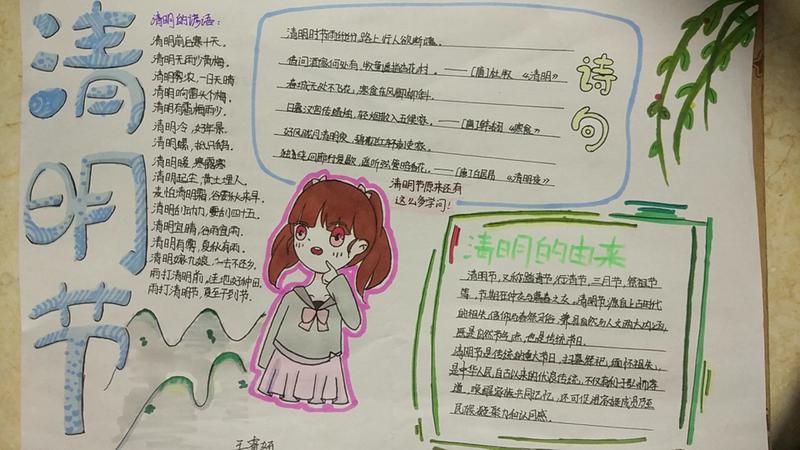 清明节
清明的谚语：
清明前后寒十天，
清明无雨少黄梅，
清明雾浓，一日天晴
清明响雷头个梅，
清明有霜梅雨少，
清明冷，好年景，
清明暖，寒露寒
清明起尘，黄土埋人，
麦怕清明霜，谷要秋来旱，
清明宜晴，谷雨宜雨，
清明有雾，夏秋有雨，
清明嫁九娘，一去不还乡，
雨打清明前，洼地好种田，
雨打清明节，直至干到节。
诗句
清明时节雨纷纷，路上行人欲断魂。
借问酒家何处有，牧童遥指杏花村。——[唐]杜牧 《清明》
春城无处不飞花，寒食东风御柳斜。
日暮汉宫传蜡烛，轻烟散入五侯家。——[唐]韩翃《寒食》
好风胧月清明夜，
独绕回廊行复歇，遥听弦管暗看花。——[唐]白居易 《清明夜》
清明节原来还有
这么多学问！
清明的由来
清明节，又称踏青节，行清节，三月节，祭祖节
等，节期在仲春与暮春之交。清明节源自上古时代
的祖先信仰与春祭礼俗，兼具自然与人文两大内涵，
既是自然节气点，也是传统节日。
清明节是传统的重大节日，扫墓祭祀，缅怀祖先，
是中华人民自古以来的优良传统，不仅有利于弘扬孝
道，唤醒家族共同记忆，还可促进家族成员乃至
民族凝聚力和认同感。